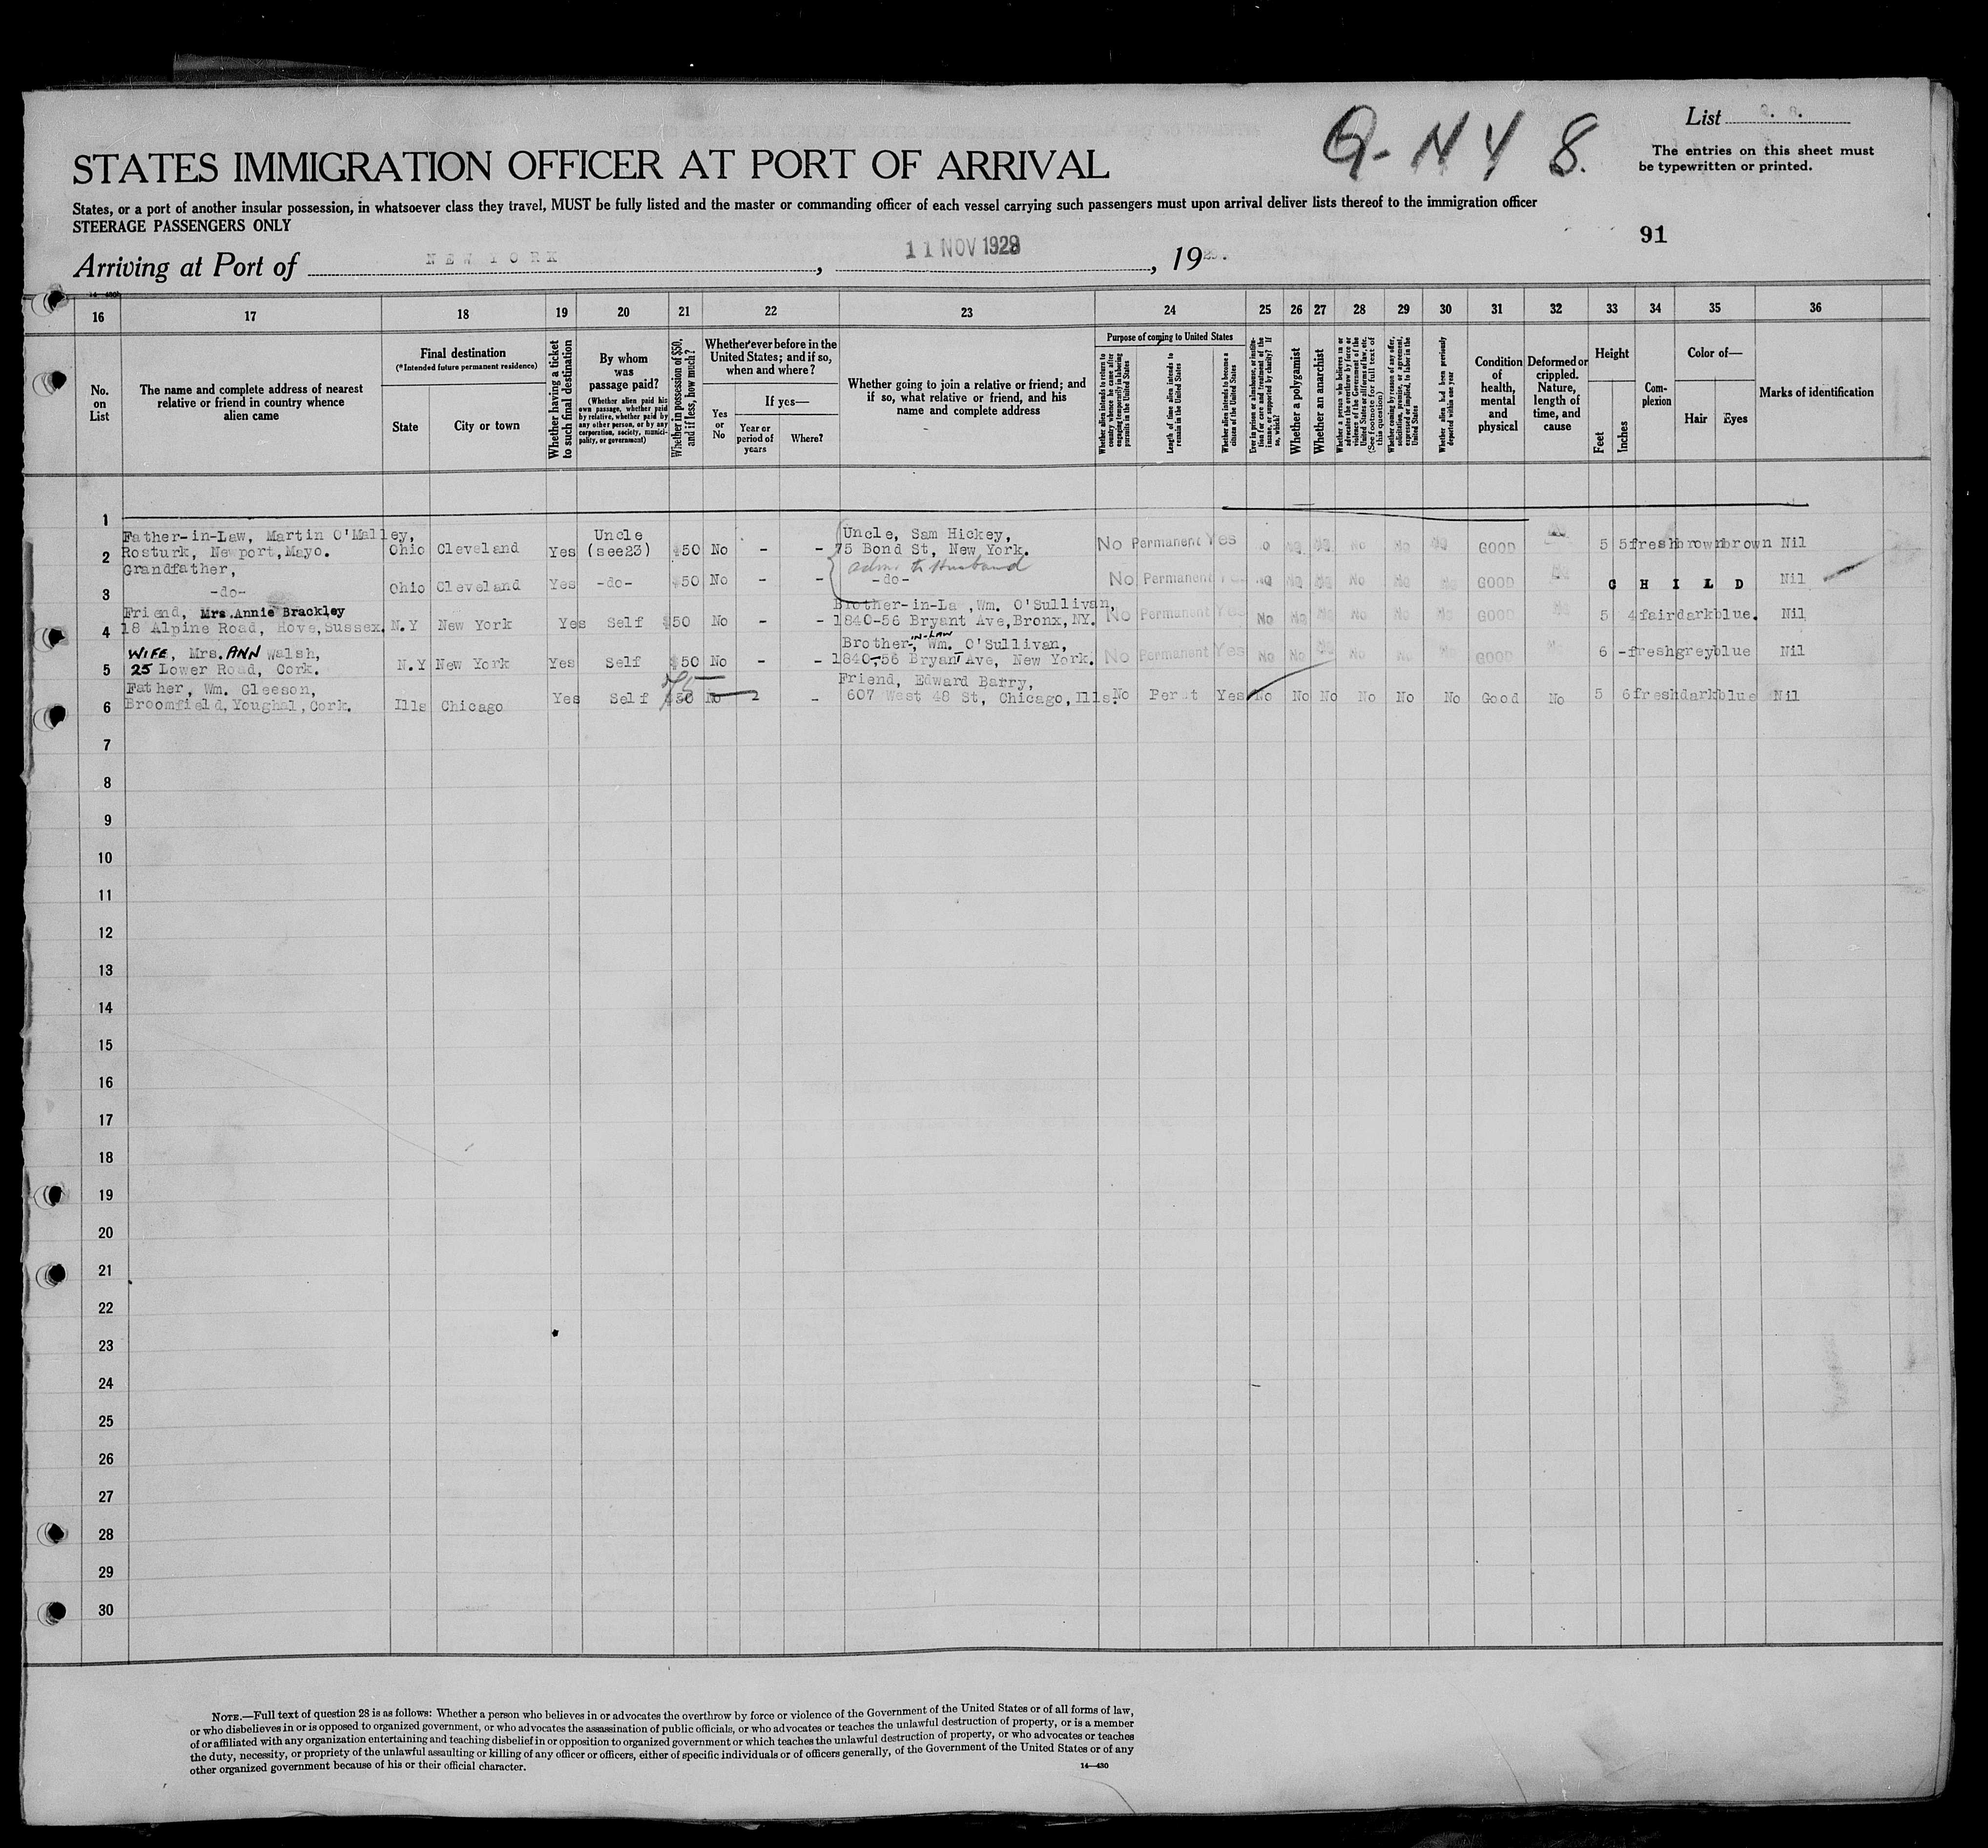 Q-NY 8.
List
The entries on this sheet must
be typewritten or printed.
STATES IMMIGRATION OFFICER AT PORT OF ARRIVAL
States, or a port of another insular possession, in whatsoever class they travel, MUST be fully listed and the master or commanding officer of each vessel carrying such passengers must upon arrival deliver lists thereof to the immigration officer
STEERAGE PASSENGERS ONLY
91
Arriving at Port of NEW YORK, 11 NOV 1928, 19
16 17 18 19 20 21 22 23 24 25 26 27 28 29 30 31 32 33 34 35 36
No. on List
The name and complete address of nearest
relative or friend in country whence
alien came
Final destination
(*Intended future permanent residence)
State
City or town
Whether having a ticket
to such final destination
By whom
was
passage paid?
(Whether alien paid his
own passage, whether paid
by relative, whether paid by
any other person, or by any
corporation, society, munici-
pality, or government)
Whether in possession of $50,
and if less, how much?
Whether ever before in the
United States; and if so,
when and where?
Yes
or
No
If yes—
Year or
period of
years
Where?
Whether going to join a relative or friend; and
if so, what relative or friend, and his
name and complete address
Purpose of coming to United States
Whether alien intends to return to
country whence he came after
engaging temporarily in laboring
pursuits in the United States
Length of time alien intends to
remain in the United States
Whether alien intends to become a
citizen of the United States
Ever in prison or almshouse, or institu-
tion for care and treatment of the
insane, or supported by charity? If
so, which?
Whether a polygamist
Whether an anarchist
Whether a person who believes in or
advocates the overthrow by force or
violence of the Government of the
United States or all forms of law, etc.
(See footnote for full text of
this question)
Whether coming by reason of any offer,
solicitation, promise, or agreement,
expressed or implied, to labor in the
United States
Whether alien had been previously
deported within one year
Condition
of
health,
mental
and
physical
Deformed or
crippled.
Nature,
length of
time, and
cause
Height
Feet
Inches
Com-
plexion
Color of—
Hair
Eyes
Marks of identification
1
Father-in-Law, Martin O'Malley,
2 Rosturk, Newport, Mayo. Ohio Cleveland Yes Uncle (see23) $50 No - - Uncle, Sam Hickey,
75 Bond St, New York. No Permanent Yes No No No No No GOOD 5 5 fresh brown brown Nil
adm. to Husband
Grandfather,
3 -do- Ohio Cleveland Yes -do- $50 No - - -do- No Permanent No No No No No No GOOD CHILD Nil
Friend, Mrs. Annie Brackley Brother-in-La , Wm. O'Sullivan,
4 18 Alpine Road, Hove, Sussex. N.Y New York Yes Self $50 No - - 1840-56 Bryant Ave, Bronx, NY. No Permanent Yes No No No No No No GOOD No 5 4 fair dark blue. Nil
WIFE, Mrs. ANN Walsh, Brother-IN-LAW, Wm. O'Sullivan,
5 25 Lower Road, Cork. N.Y New York Yes Self $50 No - - 1840-56 Bryant Ave, New York. No Permanent Yes No No No No No No GOOD No 6 - fresh grey blue Nil
Father, Wm. Gleeson, Friend, Edward Barry,
6 Broomfield, Youghal, Cork. Ills Chicago Yes Self $50 No - 607 West 48 St, Chicago, Ills. No Per t Yes No No No No No No Good No 5 6 fresh dark blue Nil
7
8
9
10
11
12
13
14
15
16
17
18
19
20
21
22
23
24
25
26
27
28
29
30
NOTE.—Full text of question 28 is as follows: Whether a person who believes in or advocates the overthrow by force or violence of the Government of the United States or of all forms of law,
or who disbelieves in or is opposed to organized government, or who advocates the assassination of public officials, or who advocates or teaches the unlawful destruction of property, or is a member
of or affiliated with any organization entertaining and teaching disbelief in or opposition to organized government or which teaches the unlawful destruction of property, or who advocates or teaches
the duty, necessity, or propriety of the unlawful assaulting or killing of any officer or officers, either of specific individuals or of officers generally, of the Government of the United States or of any
other organized government because of his or their official character.
14—430